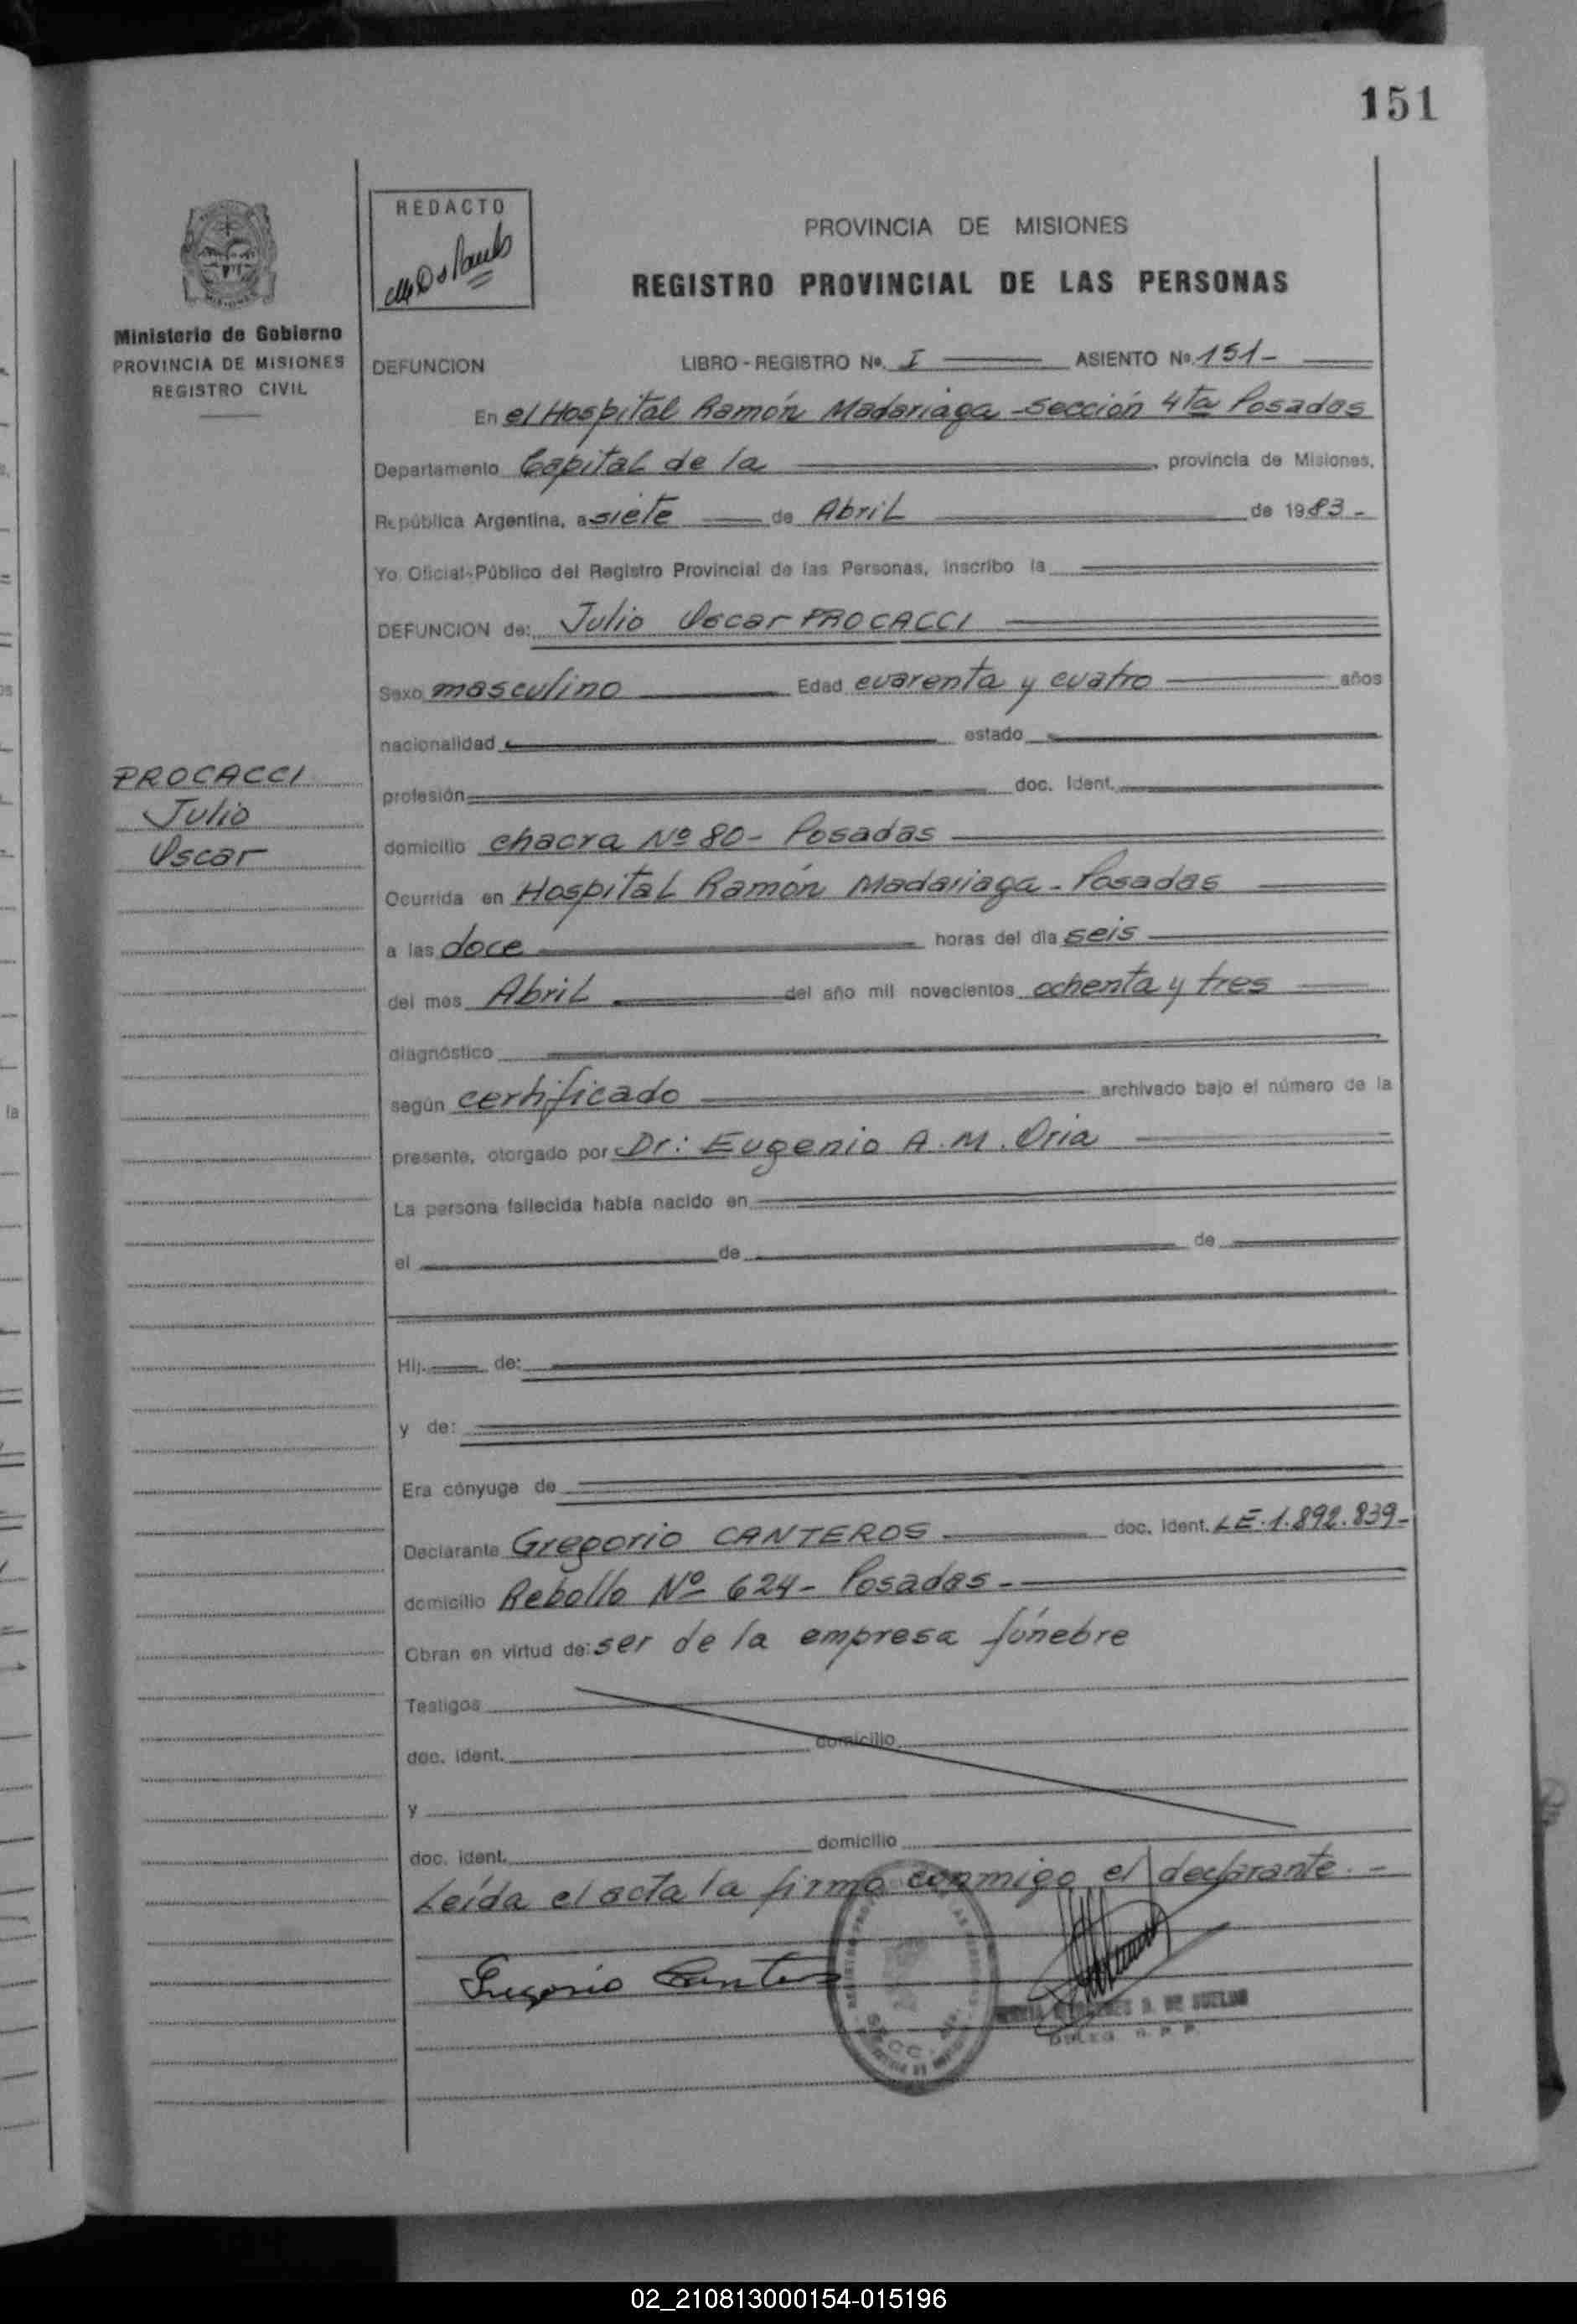 151
REDACTO
PROVINCIA DE MISIONES
REGISTRO PROVINCIAL DE LAS PERSONAS
Ministerio de Gobierno
PROVINCIA DE MISIONES
REGISTRO CIVIL
DEFUNCION LIBRO - REGISTRO Nº. I ASIENTO Nº. 151-
En el Hospital Ramón Madariaga - sección 4ta Posadas
Departamento Capital de la provincia de Misiones,
República Argentina, a siete de Abril de 1983-
Yo Oficial-Público del Registro Provincial de las Personas, inscribo la
DEFUNCION de: Julio Oscar PROCACCI
Sexo masculino Edad cuarenta y cuatro años
nacionalidad estado
PROCACCI
Julio
Oscar
profesión doc. Ident.
domicilio chacra Nº 80- Posadas
Ocurrida en Hospital Ramón Madariaga - Posadas
a las doce horas del día seis
del mes Abril del año mil novecientos ochenta y tres
diagnóstico
según certificado archivado bajo el número de la
presente, otorgado por Dr: Eugenio A. M. Oria
La persona fallecida había nacido en
el de de
Hij. de:
y de:
Era cónyuge de
Declarante Gregorio CANTEROS doc. ident. LE. 1.892.839-
domicilio Rebollo Nº 624- Posadas-
Obran en virtud de: ser de la empresa fúnebre
Testigos
doc. ident. domicilio
y
doc. ident. domicilio
Leída el acta la firma conmigo el declarante.-
Gregorio Canteros
02_210813000154-015196